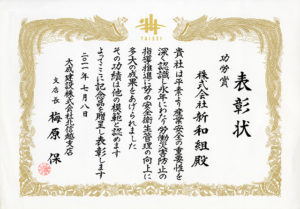 TAISEI
表彰状
功労賞
株式会社新和組殿
貴社は平素より産業安全の重要性を
深く認識し永年にわたり労働災害防止の
指導推進に努め安全衛生管理の向上に
多大の成果をあげられました
その功績は他の模範と認めます
よってここに記念品を贈呈し表彰します
二〇一一年七月八日
大成建設株式会社北信越支店
支店長 梅原 保